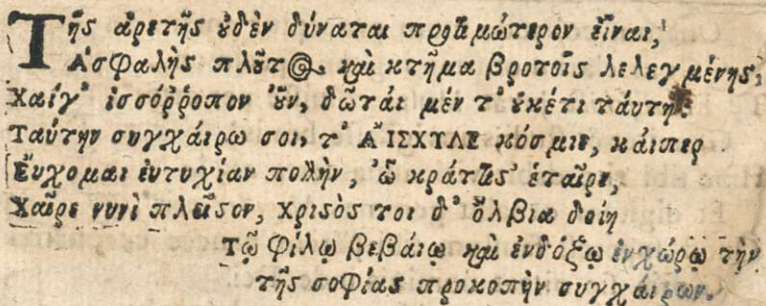 Τῆς ἀρετῆς ἐδὲν δύναται προτιμώτερον εἶναι,
Ἀσφαλὴς πλῦτος καὶ κτῆμα βροτοῖς λελεγμένης,
Χαίγ' ἰσσόῤῥοπον ὂν, δῶται μέν τ' ὐκέτι ταύτης
Ταύτην συγχάιρω σοι, τ' ΑἸΣΧΥΛΕ κόσμιε, κάιπερ
Εὔχομαι ἐντυχίαν πολὴν, ὦ κράτιστ' ἑταῖρε,
Χαῖρε νυνὶ πλεῖστον, χρισὸς τοι δ' ὄλβια δοίη
Τῷ φίλῳ βεβάιῳ καὶ ἐνδόξῳ ἐνχώρῳ τὴν
τῆς σοφίας προκοπὴν συγχάιρων.